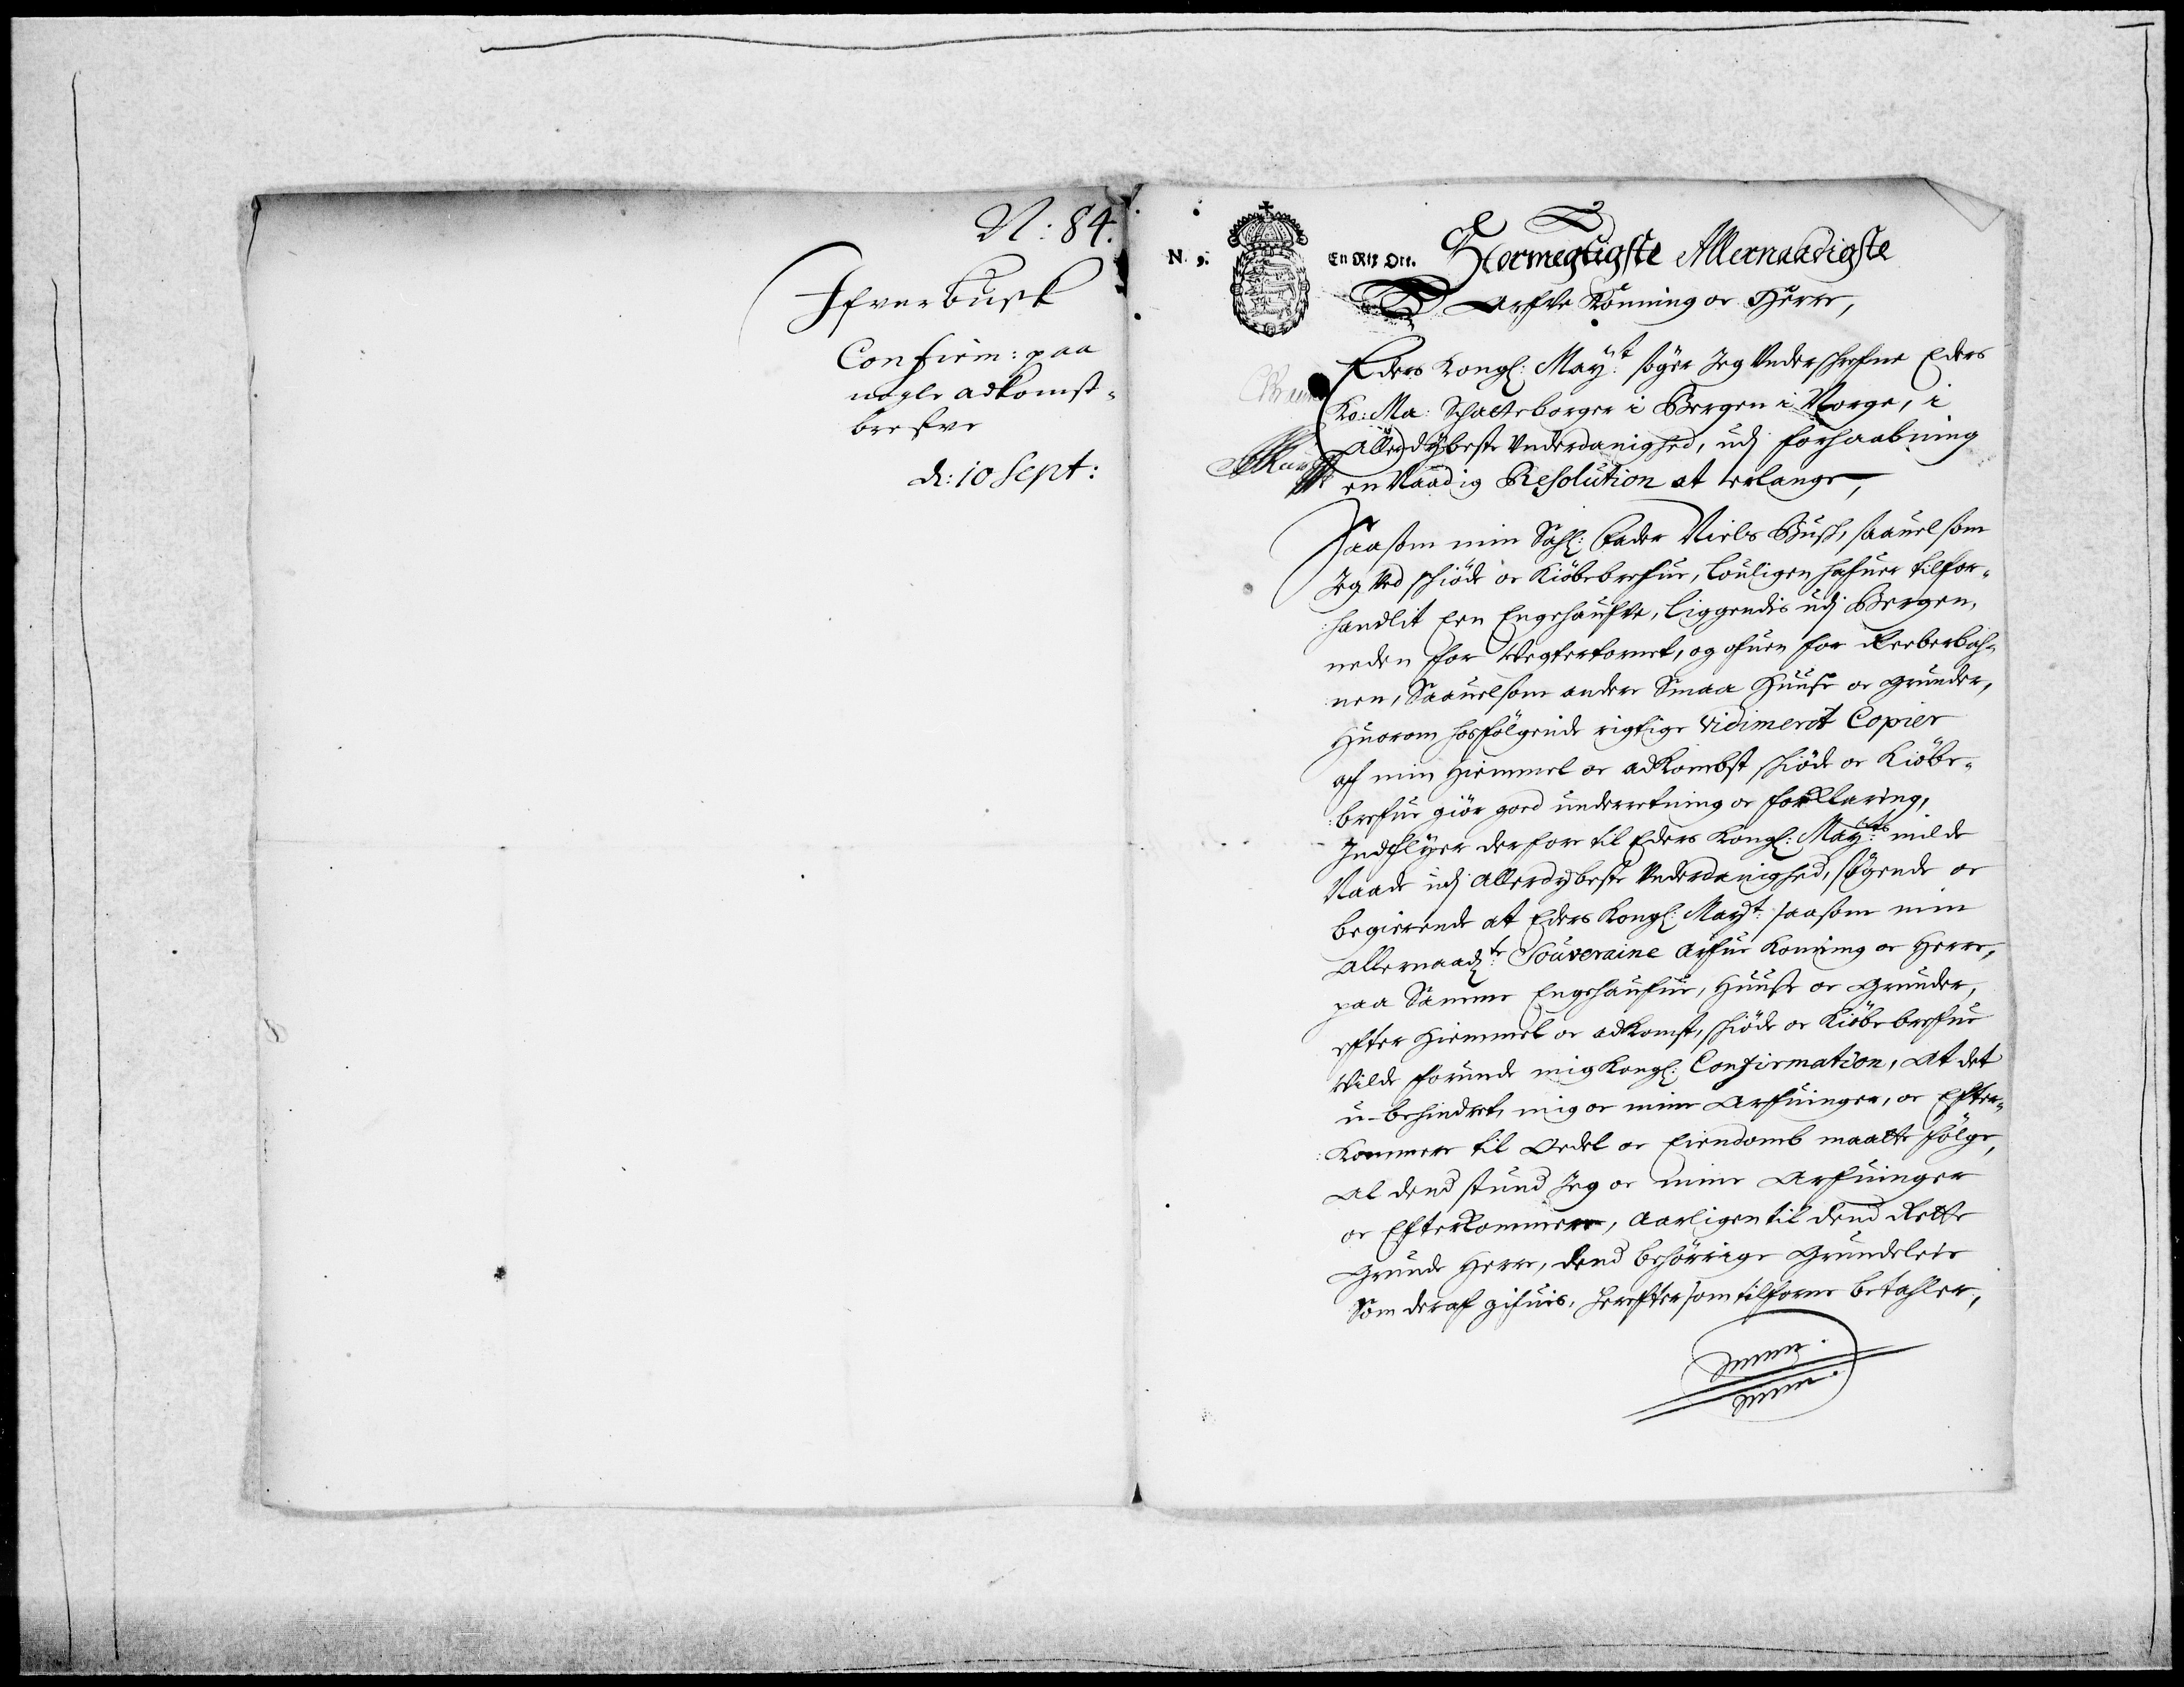 N: 84.
Ifver Busk
Confirm: paa
nogle adkomst-
brefve
d: 10 Sept:
N. 9.
En Rix Ort.
Stormegtigste Allernaadigste
Arfve Konning oc Herre,
Eders Kongl: Mayt: søger Jeg Underschrefne Eders
Ko: Ma: Schatteborger i Bergen i Norge, i
Allerdybeste Underdanighed, udj forhaabning
en Naadig Resolution at erlange,
Saasom min Sahl: Fader Niels Busch, saauel som
Jeg Ved schiøde oc Kiøbebrefue, louligen hafuer tilfor-
handlit Een Engehaufve, liggendis udj Bergen,
neden for Vegtertornet, og ofuen for Reeberbah-
nen, Saauelsom andre Smaa Huuse oc grunder,
Huorom hosfølgende rigtige vidimerit Copier
aff min Hiemmel oc adkombst schiøde oc Kiøbe-
brefue giør goed underretning oc forklaring,
Indflyer derfore til Eders Kongl: Mayts: milde
Naade udj Allerdybeste Underdanighed, søgende oc
begierende at Eders Kongl: Mayt: saasom min
Allernaadte: Souveraine Arfue Konning oc Herre,
paa Samme Engehaufue, Huuse oc grunder,
efter Hiemmel oc adkomst, schiøde oc Kiøbebrefue
Vilde forunde mig Kongl: Confirmation, At det
u-behindret, mig oc mine Arfuinger, oc Efter-
kommere til Oedel oc Eiendomb maatte følge,
Al dend stund Jeg oc mine Arfuinger
oc Efterkommere, Aarligen til dend Rette
Grunde Herre, dend behørrige Grundeleie
Som deraf gifuis, herefter som tilforne betahler,